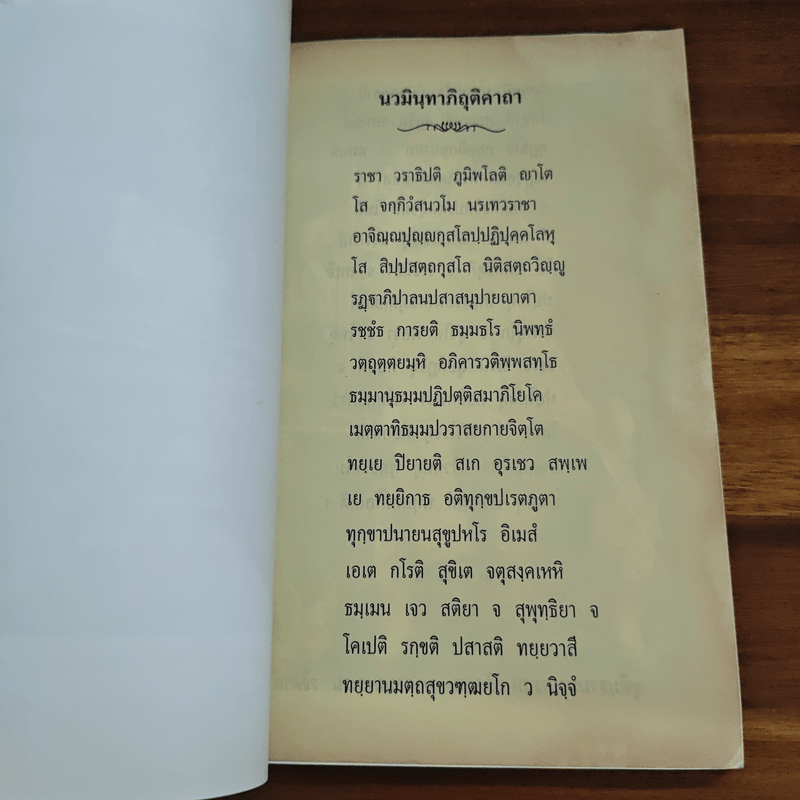 นวมินฺทาภิถุติคาถา
ราชา วราธิปติ ภูมิพโลติ ญาโต
โส จกฺกิวํสนวโม นรเทวราชา
อาจิณฺณปุญฺญกุสโลปฺปฏิปุคฺคโลหุ
โส สิปฺปสตฺถกุสโล นิติสตฺถวิญฺญู
รฏฺฐาภิปาลนปสาสนุปายญาตา
รชฺชํธ การยติ ธมฺมธโร นิพทฺธํ
วตฺถุตฺตยมฺหิ อภิคารวติพฺพสทฺโธ
ธมฺมานุธมฺมปฏิปตฺติสมาภิโยโค
เมตฺตาทิธมฺมปวราสยกายจิตฺโต
ทยฺเย ปิยายติ สเก อุรเชว สพฺเพ
เย ทยฺยิกาธ อติทุกฺขปเรตภูตา
ทุกฺขาปนายนสุขูปหโร อิเมสํ
เอเต กโรติ สุขิเต จตุสงฺคเหหิ
ธมฺเมน เจว สติยา จ สุพุทฺธิยา จ
โคเปติ รกฺขติ ปสาสติ ทยฺยวาสี
ทยฺยานมตฺถสุขวฑฺฒยโก ว นิจฺจํ